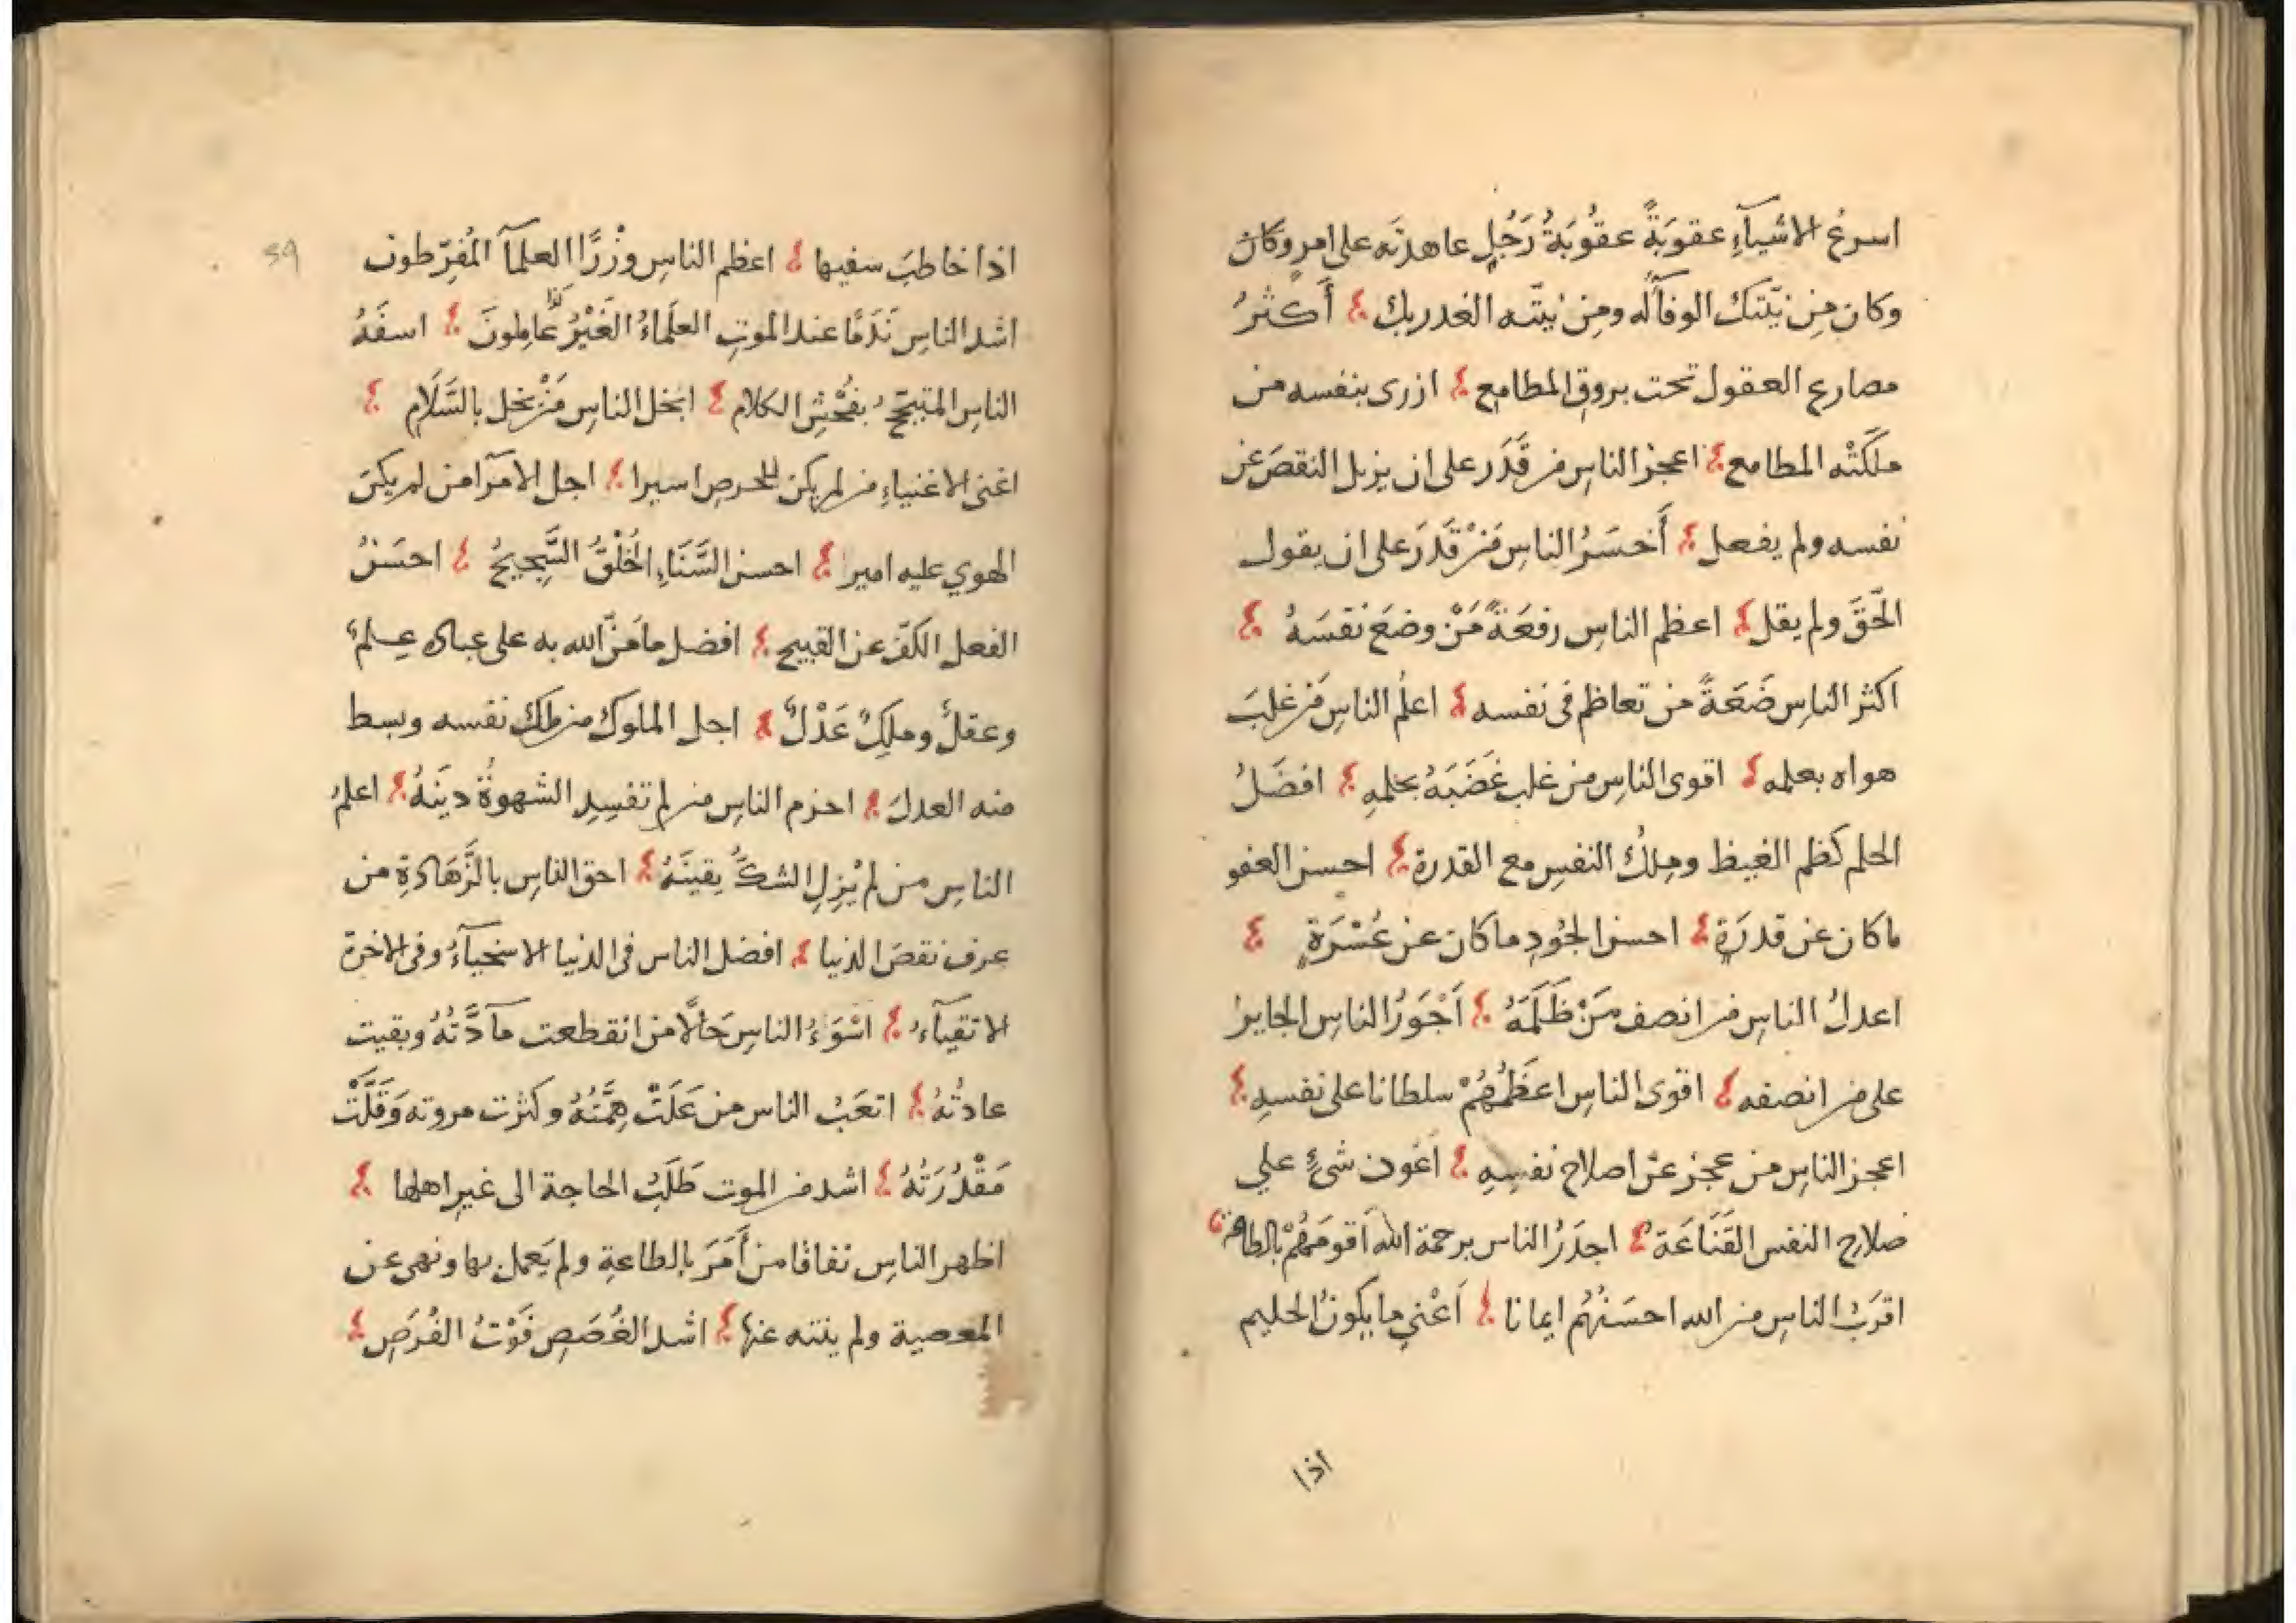 اسرعُ الاشيآءِ عقوبَةً عقُوبَةُ رَجُلٍ عاهدتَه على امرٍ وكان
وكان مِن نيّتك الوفآُله ومِن نيتّه الغدر بك ؛ أَكثرُ
مصارع العقول تحت بروق المطامع ؛ ازرى بنفسه من
ملكَتْه المطامع ؛ اعجز الناسِ من قَدَر على ان يزيل النقصَ عن
نفسه ولم يفعل ؛ أَخسَرُ الناسِ مَنْ قَدَرَ على ان يقول
الحَقَّ ولم يقل ؛ اعظم الناس رفعَةً مَنْ وضَعَ نفسَهُ ؛
اكثر الناسِ ضَعَةً من تعاظم فى نفسه ؛ اعلمُ الناسِ مَن غلبَ
هواه بعلمه ؛ اقوى الناسِ من غلب غَضَبَهُ بحلمِهِ ؛ افضَلُ
الحلم كظم الغيظ ومِلكُ النفسِ مع القدرة ؛ احسن العفو
ماكان عن قدرَةٍ ؛ احسن الجُودِ ماكان عن عُسْرَةٍ ؛
اعدلُ الناسِ من انصف مَنْ ظَلَمَهُ ؛ اَجْوَرُ الناسِ الجايرُ
على من انصفه ؛ اقوى الناسِ اعظَمُهُمْ سلطانا على نفسِهِ ؛
اعجز الناسِ من عجز عن اصلاح نفسِهِ ؛ اعون شىءٍ على
صلاحِ النفس القَنَاعَة ؛ اجدَرُ الناس برحمة الله اَقومَهُمْ بالطاعة ؛
اقرَبُ الناسِ من الله احسَنُهُم ايمانا ؛ اَغْنى ما يكونُ الحليم
اذا
59
اذا خاطبَ سفيها ؛ اعظم الناسِ وِزْرًا العلمآَ المُفرّطون
اشد الناسِ نَدَمًا عند الموتِ العلَماءُ الغَيْرُ عَامِلونَ ؛ اسفَهُ
الناسِ المتبجّحُ بفُحْشِ الكلام ؛ ابخل الناسِ مَنْ بخل بالسَّلَام ؛
اغنى الاغنياءِ من لم يكن للحرصِ اسيرا ؛ اجل الامرآ من لم يكنَ
الهوي عليه امير ا ؛ احسن السَّنَاءِ الخُلْقُ السَّجِيحُ ؛ احسَنُ
الفعل الكفّ عن القبيح ؛ افضل ما مَنَّ الله به على عباده عِلمٌ
وعقلٌ وملِكٌ عَدْلٌ ؛ اجل الملوك من ملك نفسه وبسط
منه العدلَ ؛ احزم الناسِ من لم تفسِدِ الشهوةُ دينَهُ ؛ اعلمُ
الناسِ من لم يُزِلِ الشكُّ يقينَهُ ؛ احق الناسِ بالزَّهَادَةِ من
عرف نقصَ الدنيا ؛ افضل الناس فى الدنيا الاسخيآءُ وفى الاخرة
الاتقيآءُ ؛ اسْوَءُ الناسِ حَالًا من انقطعت مآدَّتُهُ وبقيت
عادتُهُ ؛ اتعَبُ الناس من عَلَتْ هِمَّتُهُ وكثرت مروته وَقَلَّتْ
مَقْدُرَتُهُ ؛ اشد من الموت طَلَبُ الحاجة الى غيرِ اهلها ؛
اظهر الناسِ نفاقا من أَمَرَ بالطاعةِ ولم يَعمل بها ونهى عن
المعصية ولم ينته عنها ؛ اشد الغُصَصِ فَوْتُ الفُرَصِ ؛